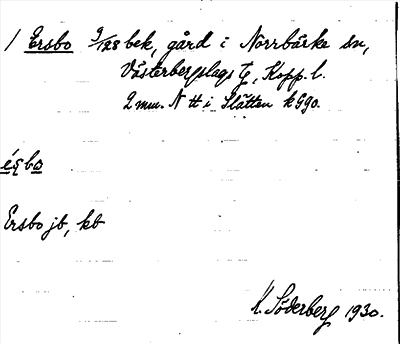 / Ersbo 9/128 bek, gård i Norrbärke sn,
Västerbergslags tg, Kopp. l.
2 mm. N tt i Slätten k 990.
ésbo
Ersbo jb, kb
K. Söderberg 1930.